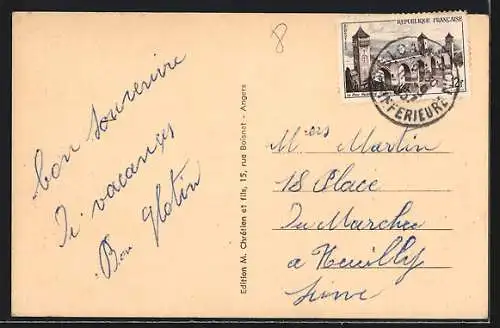 8
REPUBLIQUE FRANÇAISE
12F
INFERIEURE
bon souvenire
De vacances
Bon
Edition M. Chrétien et fils, 15, rue Boisnet - Angers
Mers Martin
18 Place
Du Marchee
a Neuilly
Seine